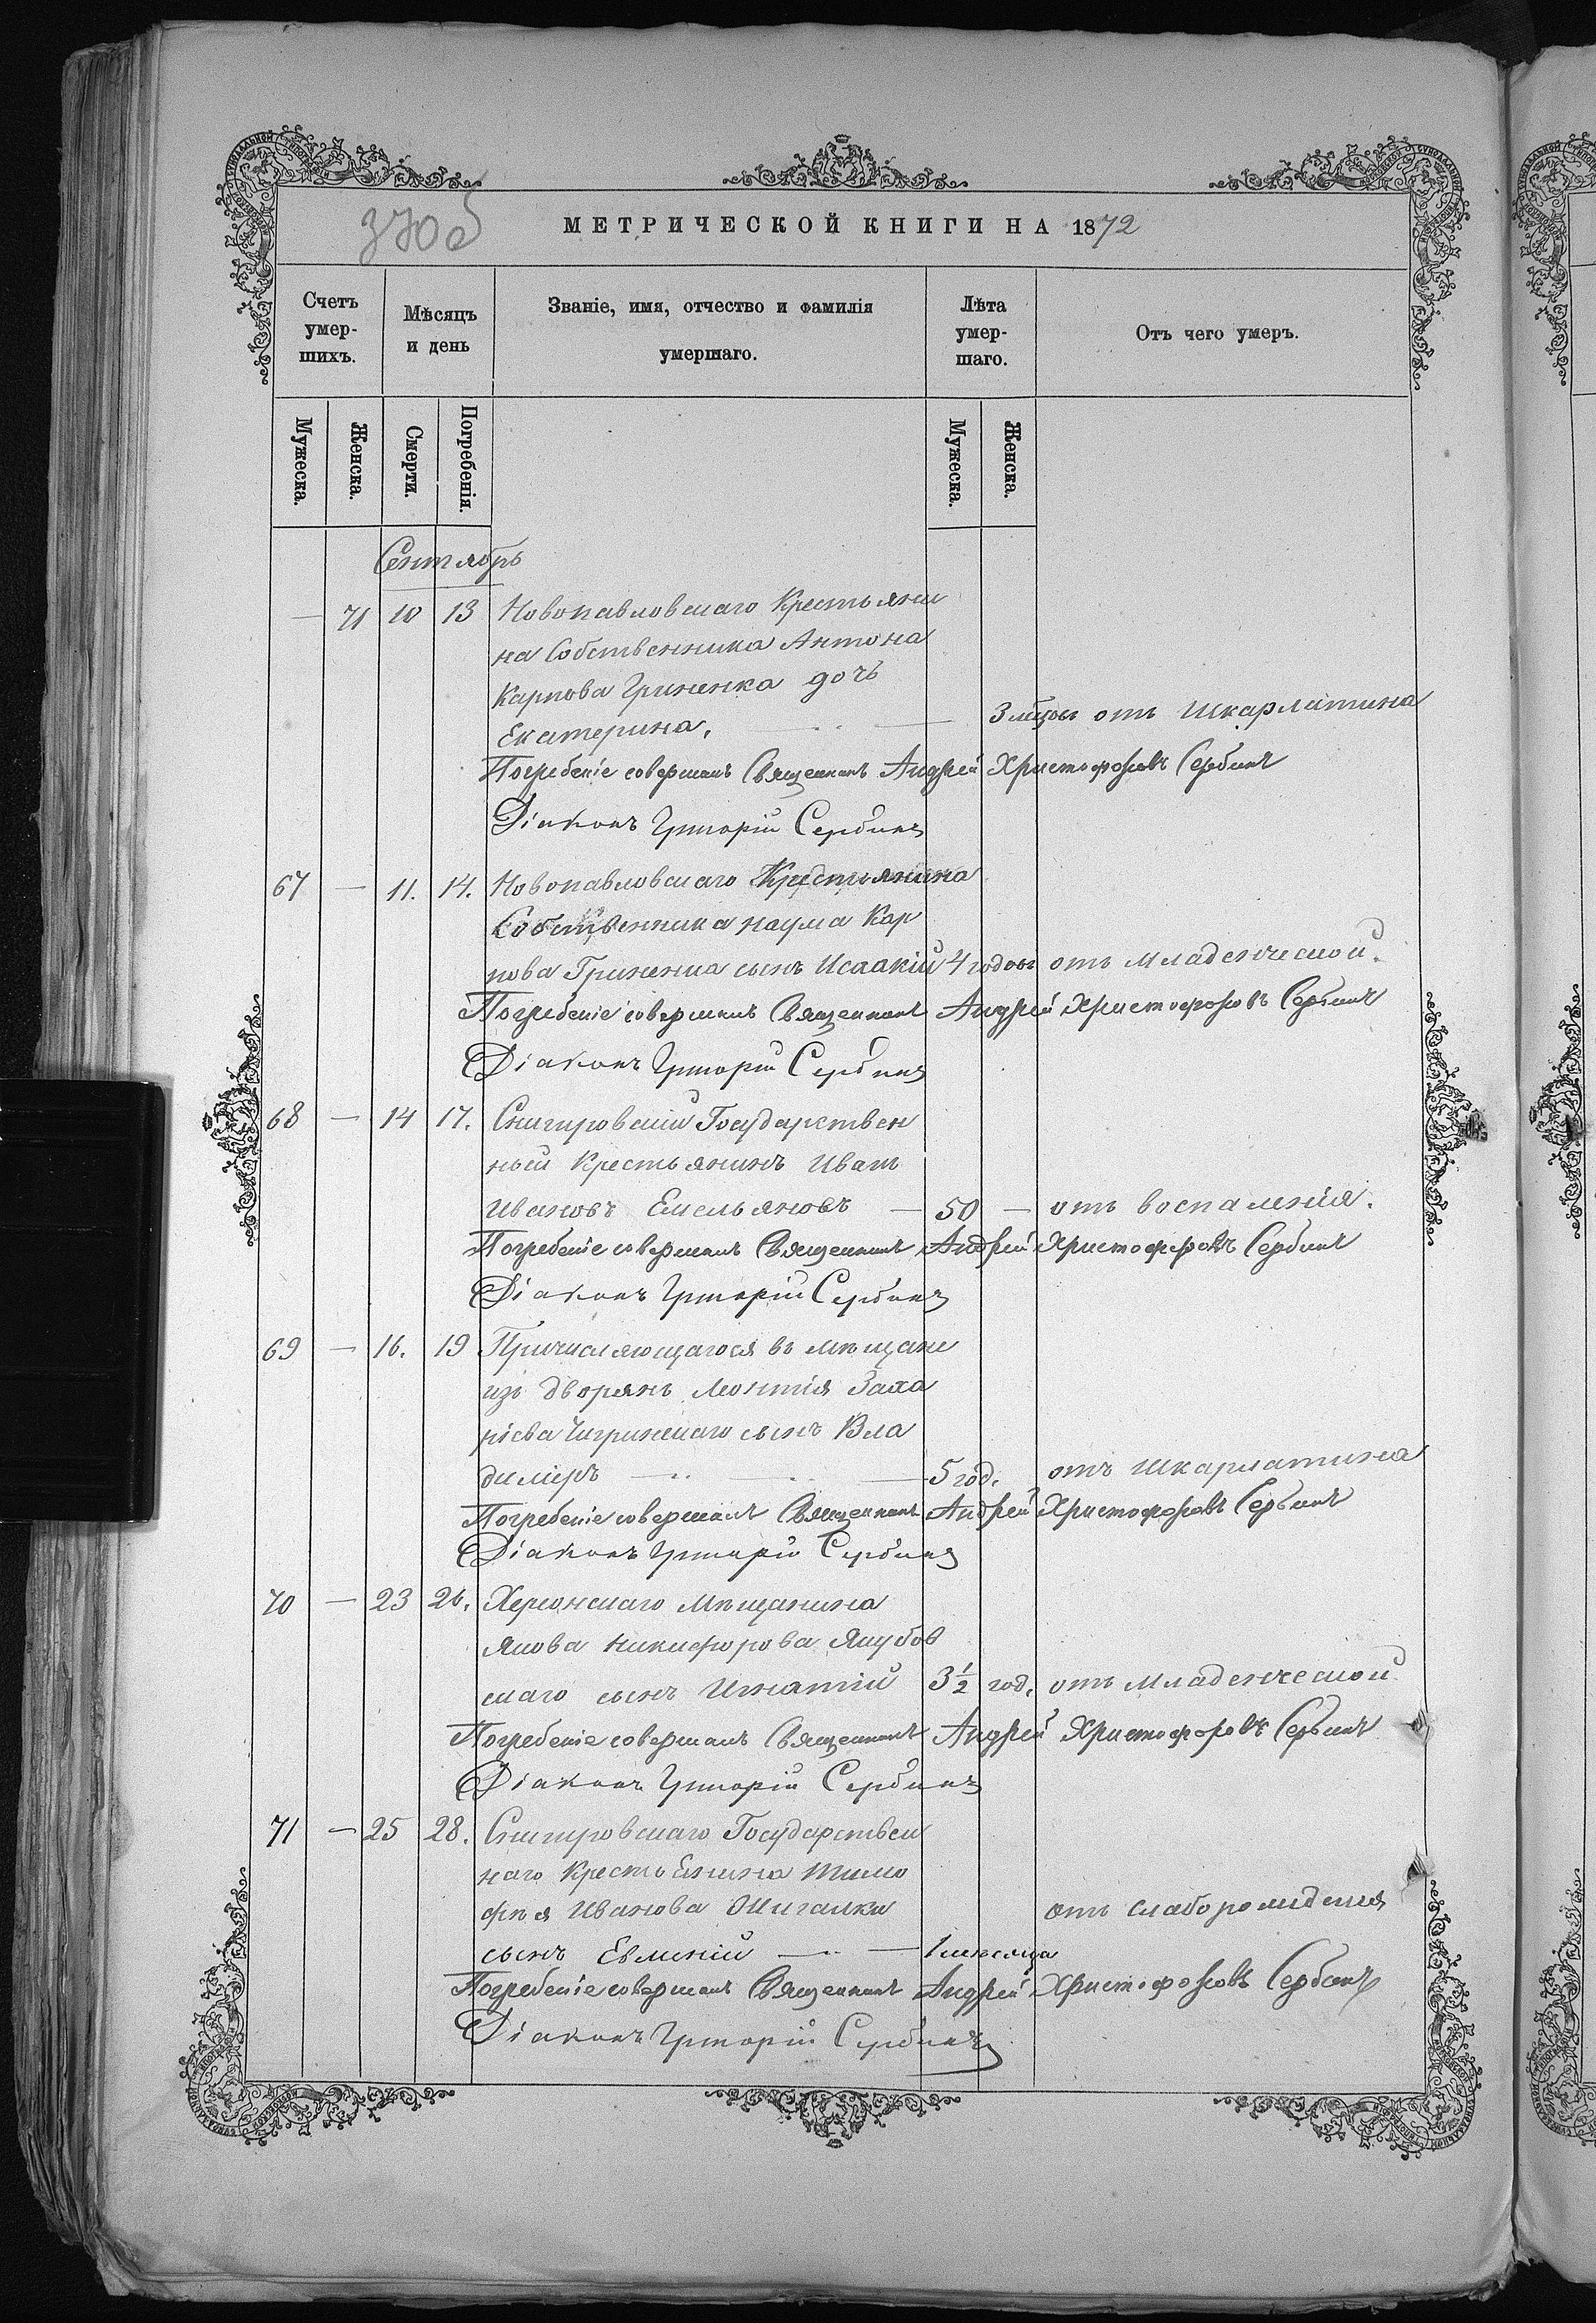 370об
МЕТРИЧЕСКОЙ КНИГИ НА 1872
Счетъ умер-шихъ.
Мѣсяцъ и день
Званіе, имя, отчество и фамилія умершаго.
Лѣта умер-шаго.
Отъ чего умеръ.
Мужеска. Женска. Смерти. Погребенія. Мужеска. Женска.
Сентябрь
— 71 10 13 Новопавловскаго Крестьяни
на Собственника Антона
Карпова Гриненка дочь
Екатерина. — 3 мѣсяц отъ Шкарлатина
Погребеніе совершалъ Священникъ Андрей Христофоровъ Сербинъ
Діаконъ Григорій Сербинъ
67 — 11. 14. Новопавловскаго Крестьянина
Собственника Наума Кар
пова Гриненка сынъ Исаакій 4 годовъ отъ Младенческой.
Погребеніе совершалъ Священникъ Андрей Христофоровъ Сербинъ
Діаконъ Григорій Сербинъ
68 — 14 17. Снигировскій Государствен
ный Крестьянинъ Иванъ
Ивановъ Емельяновъ — 50 — отъ воспаленія.
Погребеніе совершалъ Священникъ Андрей Христофоровъ Сербинъ
Діаконъ Григорій Сербинъ
69 — 16. 19 Причисляющагося въ мѣщане
изъ дворянъ Леонтія Заха
ріева Чигринскаго сынъ Вла
диміръ — 5 год. отъ Шкарлатина
Погребеніе совершалъ Священникъ Андрей Христофоровъ Сербинъ
Діаконъ Григорій Сербинъ
70 — 23 26. Херсонскаго Мѣщанина
Якова Никифорова Якубов
скаго сынъ Игнатій 3½ год. отъ Младенческой
Погребеніе совершалъ Священникъ Андрей Христофоровъ Сербинъ
Діаконъ Григорій Сербинъ
71 — 25 28. Снигировскаго Государствен
наго Крестьянина Тимо
фѣя Иванова
отъ слаборожденія
сынъ Евмений — 1 мѣсяца
Погребеніе совершалъ Священникъ Андрей Христофоровъ Сербинъ
Діаконъ Григорій Сербинъ